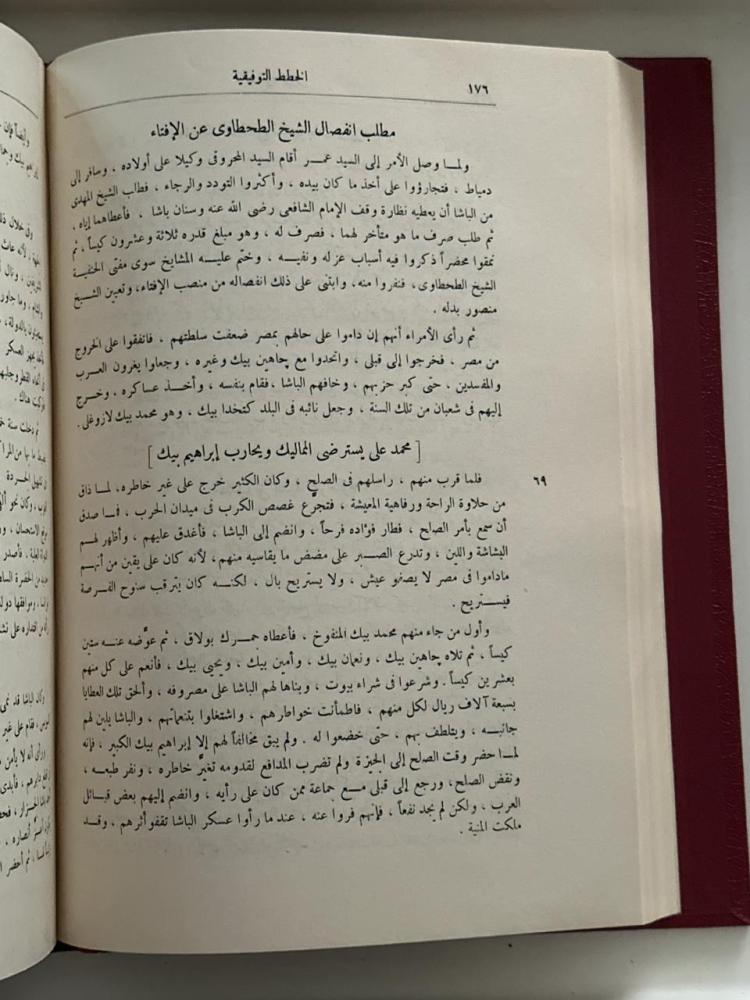 ١٧٦
الخطط التوفيقية
مطلب انفصال الشيخ الطحطاوى عن الإفتاء
ولمـا وصل الأمر إلى السيد عمـر أقام السيد المحروقى وكيلا على أولاده ، وسافر إلى
دمياط ، فتجارؤوا على أخذ ما كان بيده ، وأكثروا التودد والرجاء ، فطلب الشيخ المهدى
من الباشا أن يعطيه نظارة وقف الإمام الشافعى رضى الله عنه وسنان باشا ، فأعطاهما إياه ،
ثم طلب صرف ما هو متأخر لهما ، فصرف له ، وهو مبلغ قدره ثلاثة وعشرون كيساً ، ثم
نمقوا محضراً ذكروا فيه أسباب عزله ونفيـه ، وختم عليـه المشايخ سوى مفتى الحنفيـة
الشيخ الطحطاوى ، فنفروا منه، وابتنى على ذلك انفصاله من منصب الإفتاء، وتعين الشـيخ
منصور بدله .
ثم رأى الأمراء أنهم إن داموا على حالهم بمصر ضعفت سلطتهم ، فاتفقوا على الخروج
من مصر ، فخرجوا إلى قبلى ، واتحدوا مع چاهين بيك وغيره ، وجعلوا يغرون العـرب
والمفسدين ، حتى كبر حزبهم ، وخافهم الباشا ، فقام بنفسه ، وأخـذ عساكره ، وخـرج
إليهم فى شعبان من تلك السنة ، وجعل نائبه فى البلد كتخدا بيك ، وهو محمد بيك لازوغلى .
[ محمد على يسترضى المماليك ويحارب إبراهيم بيك ]
٦٩
فلما قرب منهم ، راسلهم فى الصلح ، وكان الكثير خرج على غير خاطره، لمـا ذاق
من حلاوة الراحة ورفاهية المعيشة ، فتجرّع غصص الكرب فى ميدان الحرب ، فمـا صدق
أن سمع بأمر الصلح ، فطار فؤاده فرحاً ، وانضم إلى الباشا ، فأغدق عليهم ، وأظهر لهـم
البشاشة واللين ، وتدرع الصـبر على مضض ما يقاسيه منهم، لأنه كان على يقين من أنهـم
ماداموا فى مصر لا يصفو عيش ، ولا يستريح بال ، لكنـه كان يترقب سنوح الفـرصة
فيسـتريح .
وأول من جاء منهم محمد بيك المنفوخ ، فأعطاه جمـرك بولاق ، ثم عوّضه عنـه ستين
كيساً ، ثم تلاه چاهين بيك ، ونعمان بيك ، وأمين بيك ، ويحيى بيك ، فأنعم على كل منهم
بعشرين كيساً . وشرعوا فى شراء بيوت ، وبناها لهم الباشا على مصروفه ، وألحق تلك العطايا
بسبعة آلاف ريال لكل منهم ، فاطمأنت خواطرهم ، واشتغلوا بتنعماتهم ، والباشا يلين لهم
جانبـه ، ويتلطف بهم ، حتى خضعوا له . ولم يبق مخالفاً لهم إلا إبراهيم بيك الكبير ، فإنه
لمـا حضر وقت الصلح إلى الجيزة ولم تضرب المدافع لقدومه تغيّر خاطره ، ونفر طبعـه ،
ونقض الصلح، ورجع إلى قبلى مـع جماعة ممن كان على رأيه ، وانضم إليهم بعض قبـائل
العرب ، ولكن لم يجد نفعاً ، فإنهم فروا عنه ، عند ما رأوا عسكر الباشا تقفو أثرهم ، وقـد
ملكت المنية .